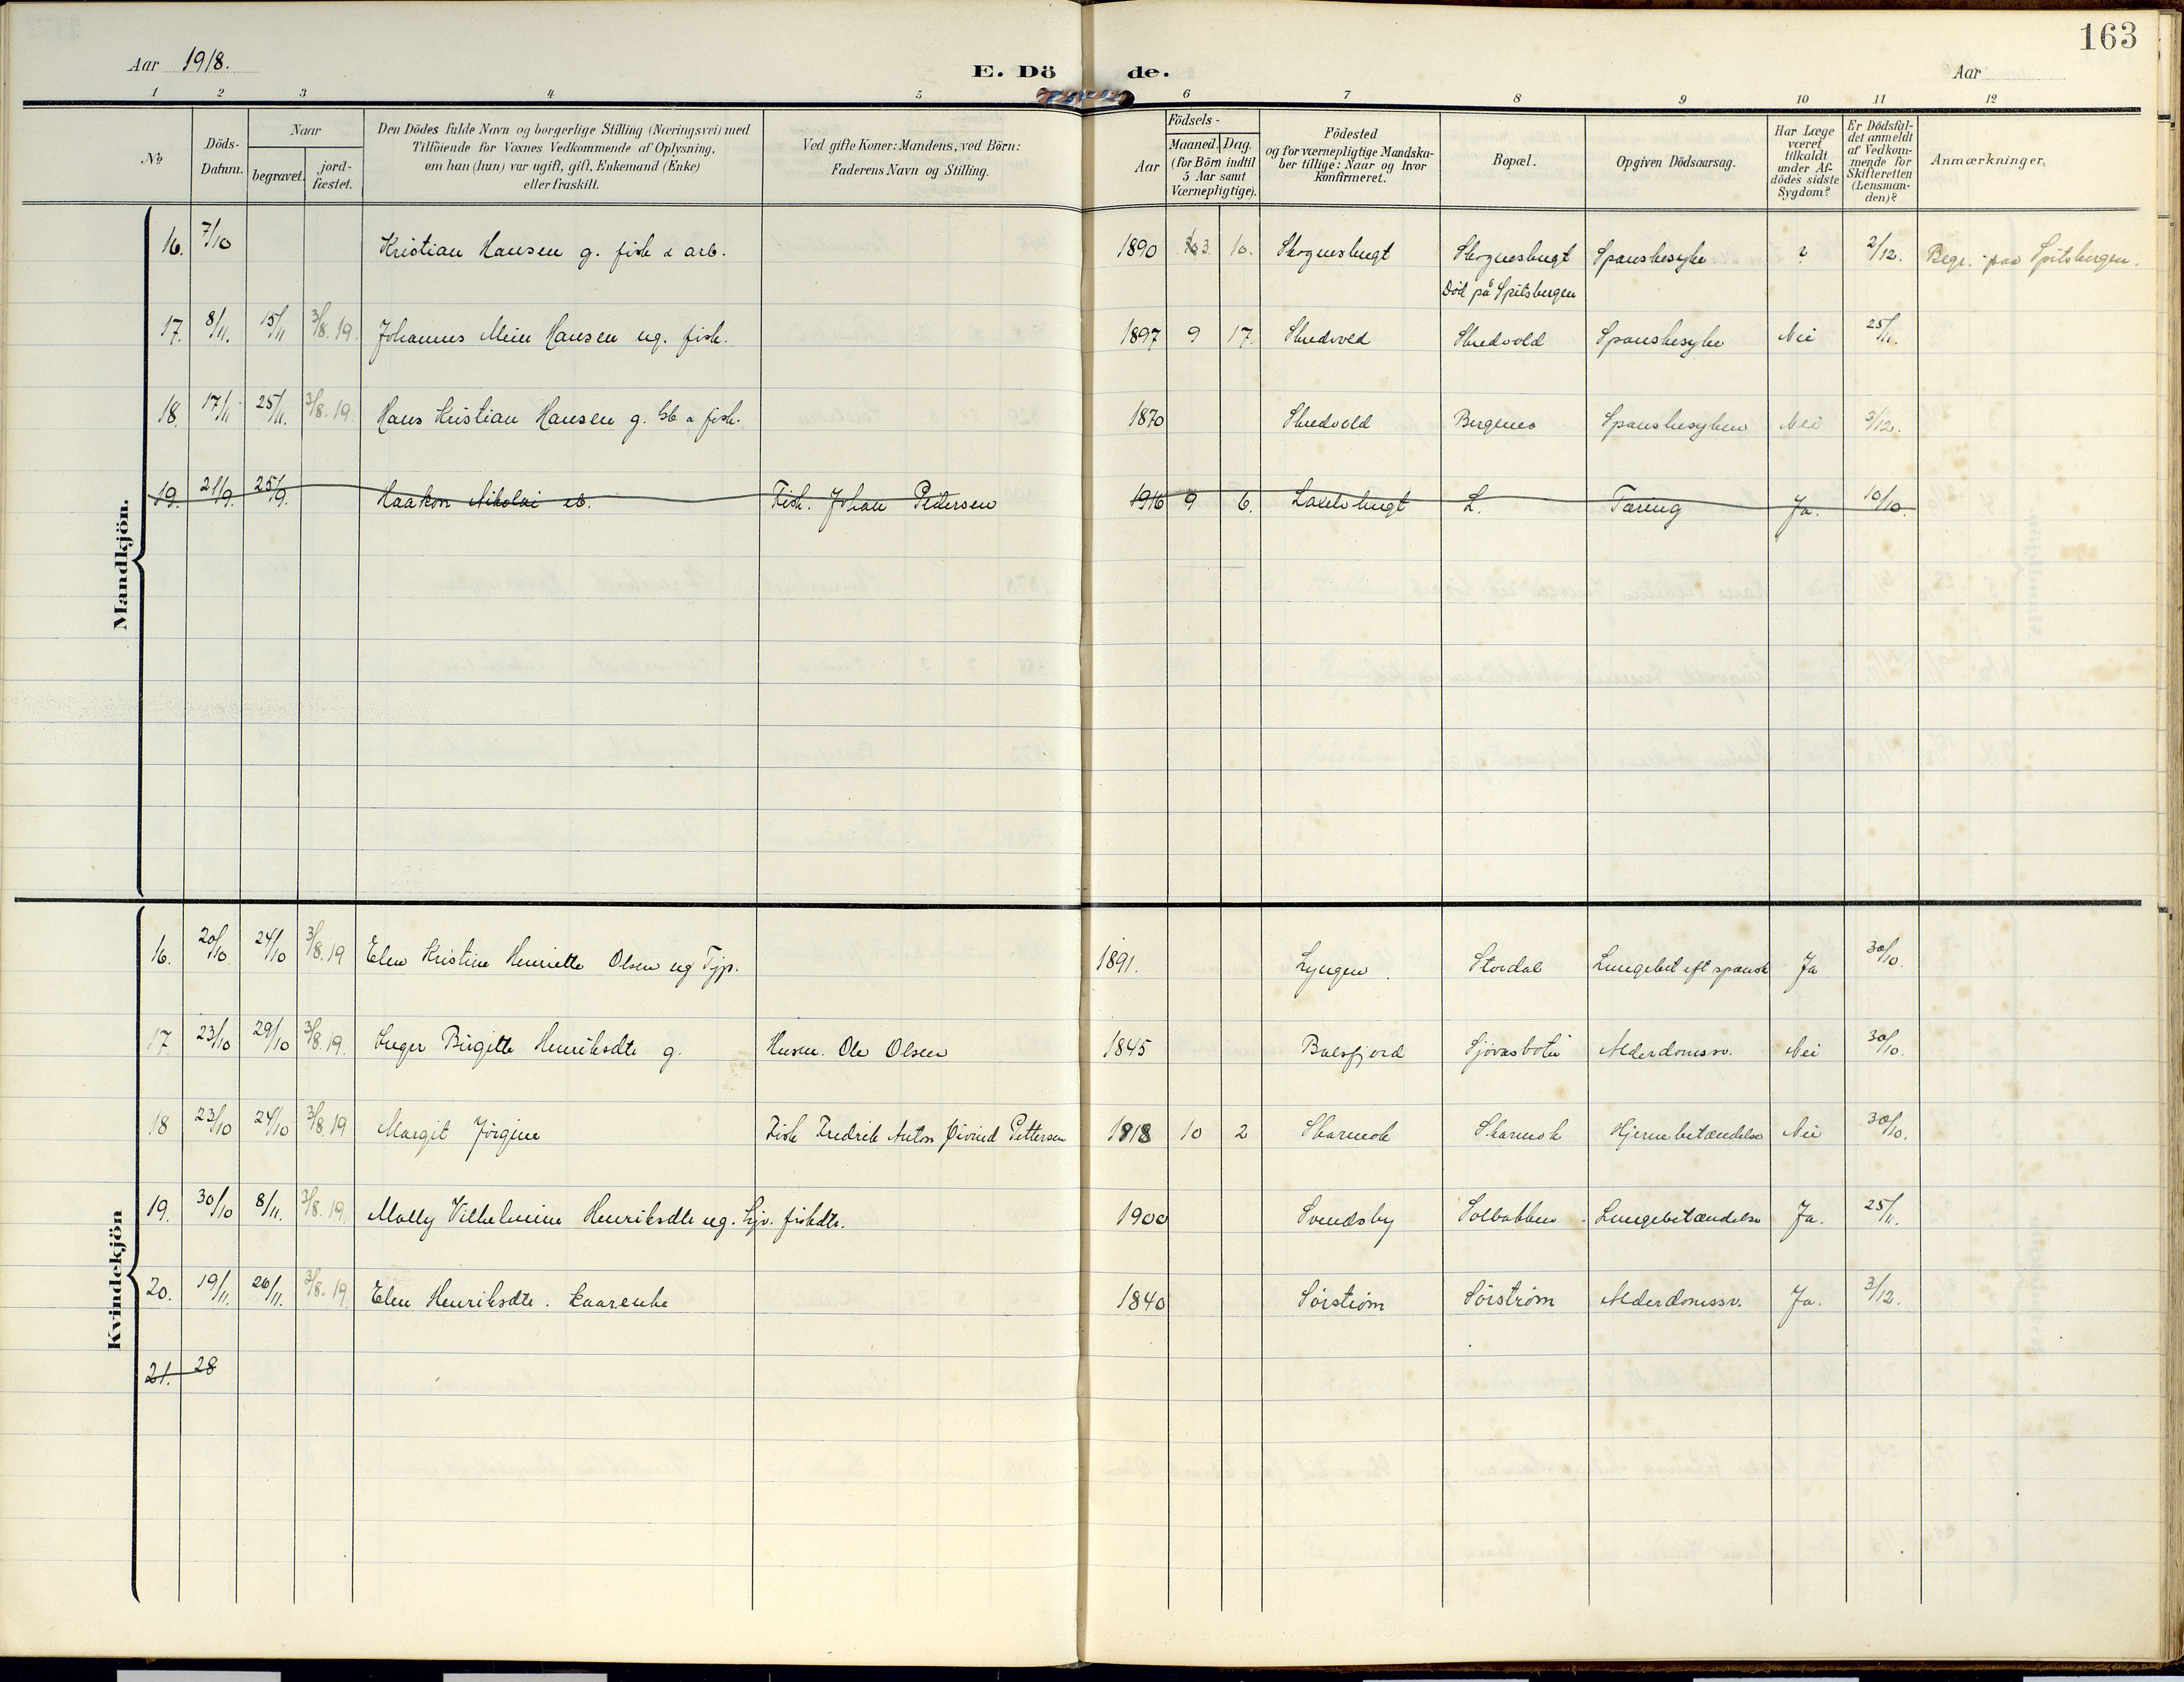 163
Aar 1918.
E. Dö de.
Aar
1 2 3 4 5 6 7 8 9 10 11 12
No
Döds-Datum.
Naar
begravet.
jord-fæstet.
Den Dödes fulde Navn og borgerlige Stilling (Næringsvei) med
Tilföiende for Voxnes Vedkommende af Oplysning,
om han (hun) var ugift, gift, Enkemand (Enke)
eller fraskilt.
Ved gifte Koner: Mandens, ved Börn:
Faderens Navn og Stilling.
Födsels-
Aar
Maaned. Dag.
(for Börn indtil
5 Aar samt
Værnepligtige).
Födested
og for værnepligtige Mandska-
ber tillige: Naar og hvor
konfirmeret.
Bopæl.
Opgiven Dödsaarsag.
Har Læge
været
tilkaldt
under Af-
dödes sidste
Sygdom?
Er Dödsfal-
det anmeldt
af Vedkom-
mende for
Skifteretten
(Lensman-
den)?
Anmærkninger.
Mandkjön.
16. 7/10 Kristian Hansen g. fisk & arb. 1890 3 10. Skognesbugt Skognesbugt Spanskesyke ? 2/12. Begr. paa Spitsbergen.
Död på Spitsbergen
17. 8/11. 15/11 3/8.19. Johannes Mein Hansen ug. fisk. 1897 9 17. Skredvold Skredvold Spanskesyke Nei 25/11.
18. 17/11 25/11. 3/8.19. Hans Kristian Hansen g. sb & fisk. 1870 Skredvold Bergenes Spanskesyken Nei 3/12.
19. 21/9. 25/9. Haakon Nikolai eb. Fisk. Johan Pedersen 1916 9 6. Lakselvbugt L. Tæring Ja. 10/10.
Kvindekjön
16. 20/10 24/10 3/8.19 Elen Kristine Henriette Olsen ug Tjp. 1891. Lyngen. Stordal Lungebet eft spansk Ja 30/10.
17. 23/10 29/10 3/8.19. Inger Birgitte Henriksdtr g. Husm. Ole Olsen 1845 Balsfjord Sjövasbotn Alderdomssv. Nei 30/10.
18 23/10 24/10 3/8.19 Margit Jörgine Fisk Fredrik Anton Öivind Pettersen 1918 10 2 Skarmok Skarmok Hjernebetændelse Nei 30/10.
19. 30/10 8/11. 3/8.19. Molly Vilhelmine Henriksdtr ug. Hjv. fiskdtr. 1900 Svendsby Solbakken Lungebetændelse Ja. 25/11.
20. 19/11. 26/11. 3/8.19. Elen Henriksdtr. kaarenke 1840 Sörström Sörström Alderdomssv. Ja. 3/12.
21. 28